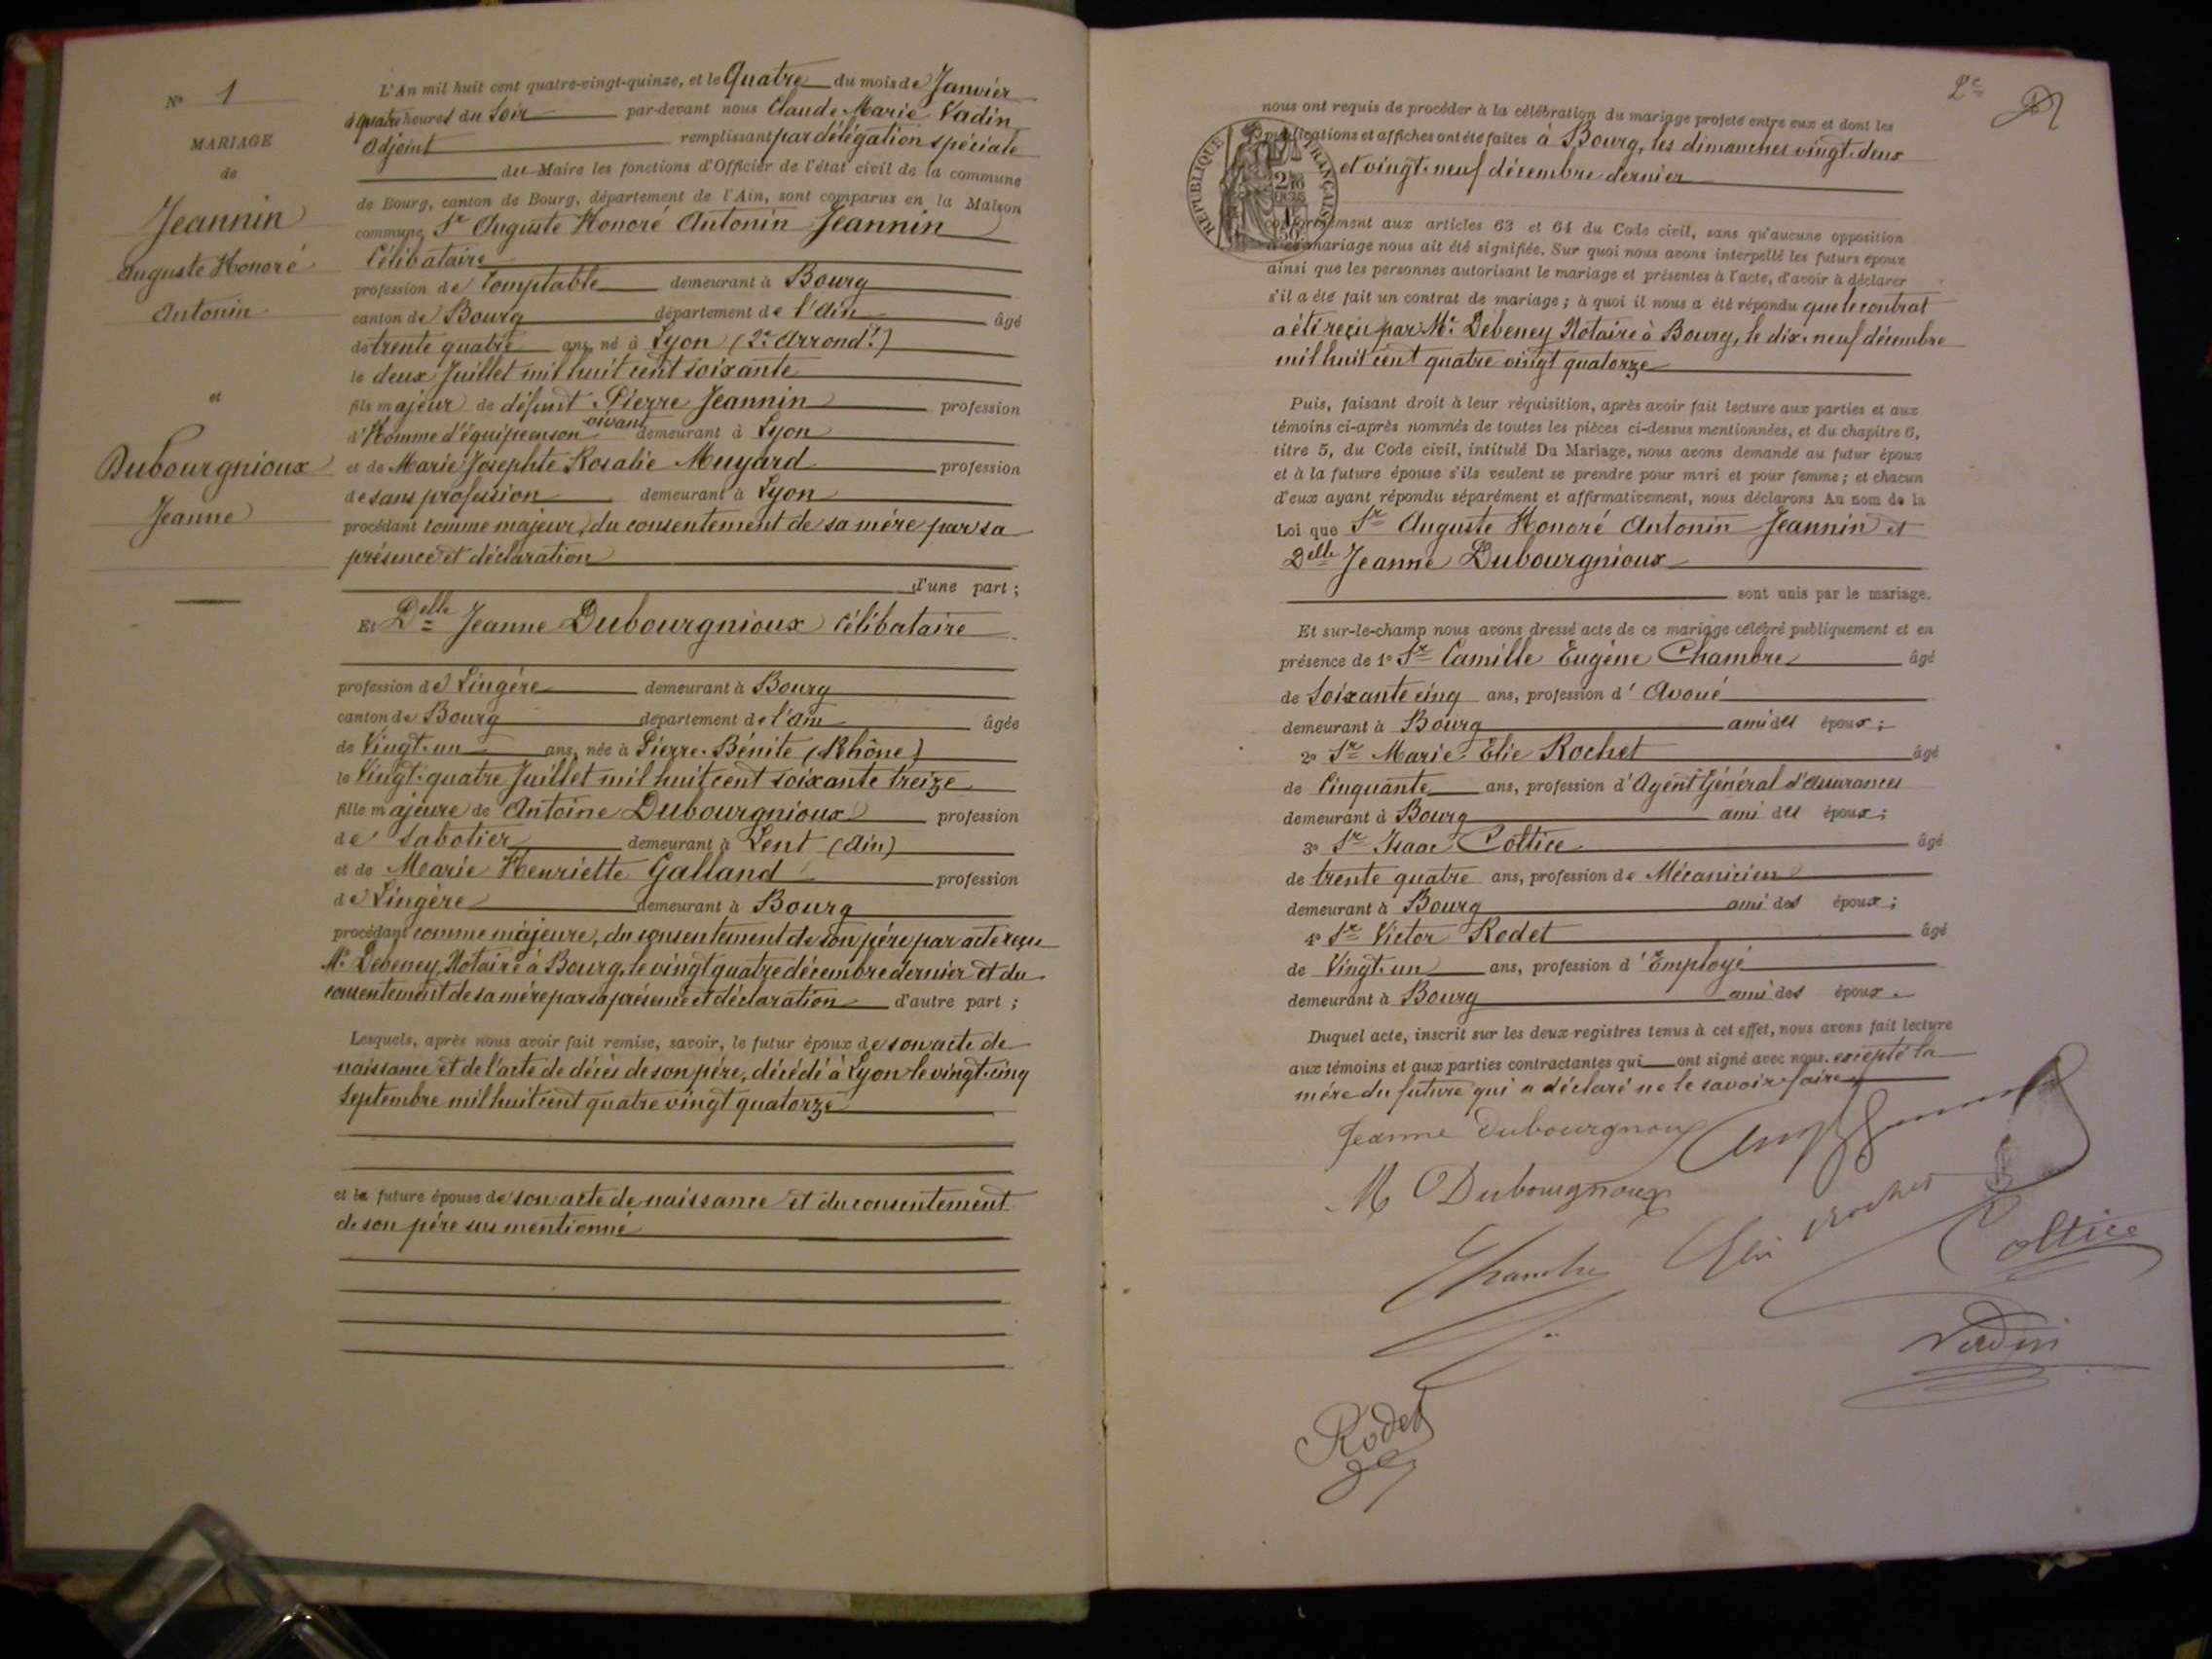 N° 1
MARIAGE
de
Jeannin
Auguste Honoré
Antonin
et
Dubourgnioux
Jeanne
L'An mil huit cent quatre-vingt-quinze, et le Quatre du mois de Janvier
à quatre heures du Soir par-devant nous Claude Marie Vadin
Adjoint remplissant par délégation spéciale
du Maire les fonctions d'Officier de l'état civil de la commune
de Bourg, canton de Bourg, département de l'Ain, sont comparus en la Maison
commune Sr Auguste Honoré Antonin Jeannin
Célibataire
profession de Comptable demeurant à Bourg
canton de Bourg département de l'Ain âgé
de trente quatre ans, né à Lyon (2e Arrondt)
le deux Juillet mil huit cent soixante
fils majeur de défunt Pierre Jeannin profession
d'Homme d'équipe en son vivant demeurant à Lyon
et de Marie Josephte Rosalie Muyard profession
de sans profession demeurant à Lyon
procédant comme majeur, du consentement de sa mère par sa
présence et déclaration
d'une part ;
Et Delle Jeanne Dubourgnioux Célibataire
profession de Lingère demeurant à Bourg
canton de Bourg département de l'Ain âgée
de Vingt-un ans, née à Pierre-Bénite (Rhône)
le Vingt-quatre Juillet mil huit cent soixante treize
fille majeure de Antoine Dubourgnioux profession
de Sabotier demeurant à Lent (Ain)
et de Marie Henriette Galland profession
de Lingère demeurant à Bourg
procédant comme majeure, du consentement de son père par acte reçu
Me Debeney, Notaire à Bourg, le vingt quatre décembre dernier et du
consentement de sa mère par sa présence et déclaration d'autre part ;
Lesquels, après nous avoir fait remise, savoir, le futur époux de son acte de
naissance et de l'acte de décès de son père, décédé à Lyon le vingt-cinq
Septembre mil huit cent quatre vingt quatorze
et la future épouse de son acte de naissance et du consentement
de son père sus mentionné
2e
nous ont requis de procéder à la célébration du mariage projeté entre eux et dont les
publications et affiches ont été faites à Bourg, les dimanches vingt-deux
et vingt-neuf décembre dernier
REPUBLIQUE FRANÇAISE
conformément aux articles 63 et 64 du Code civil, sans qu'aucune opposition
à ce mariage nous ait été signifiée. Sur quoi nous avons interpellé les futurs époux
ainsi que les personnes autorisant le mariage et présentes à l'acte, d'avoir à déclarer
s'il a été fait un contrat de mariage ; à quoi il nous a été répondu que le contrat
a été reçu par Me Debeney Notaire à Bourg, le dix-neuf décembre
mil huit cent quatre vingt quatorze
Puis, faisant droit à leur réquisition, après avoir fait lecture aux parties et aux
témoins ci-après nommés de toutes les pièces ci-dessus mentionnées, et du chapitre 6,
titre 5, du Code civil, intitulé Du Mariage, nous avons demandé au futur époux
et à la future épouse s'ils veulent se prendre pour mari et pour femme ; et chacun
d'eux ayant répondu séparément et affirmativement, nous déclarons Au nom de la
Loi que Sr Auguste Honoré Antonin Jeannin et
Delle Jeanne Dubourgnioux
sont unis par le mariage.
Et sur-le-champ nous avons dressé acte de ce mariage célébré publiquement et en
présence de 1° Sr Camille Eugène Chambre âgé
de Soixante cinq ans, profession d'Avoué
demeurant à Bourg ami des époux ;
2° Sr Marie Elie Rochet âgé
de Cinquante ans, profession d'Agent Général d'assurances
demeurant à Bourg ami des époux ;
3° Sr Isaac Coltice âgé
de trente quatre ans, profession de Mécanicien
demeurant à Bourg ami des époux ;
4° Sr Victor Rodet âgé
de Vingt-un ans, profession d'Employé
demeurant à Bourg ami des époux.
Duquel acte, inscrit sur les deux registres tenus à cet effet, nous avons fait lecture
aux témoins et aux parties contractantes qui ont signé avec nous. excepté la
mère du future qui a déclaré ne le savoir faire
Jeanne Dubourgnoux
M Dubourgnoux
Chambre Elie Rochet Coltice
Vadin
Rodet